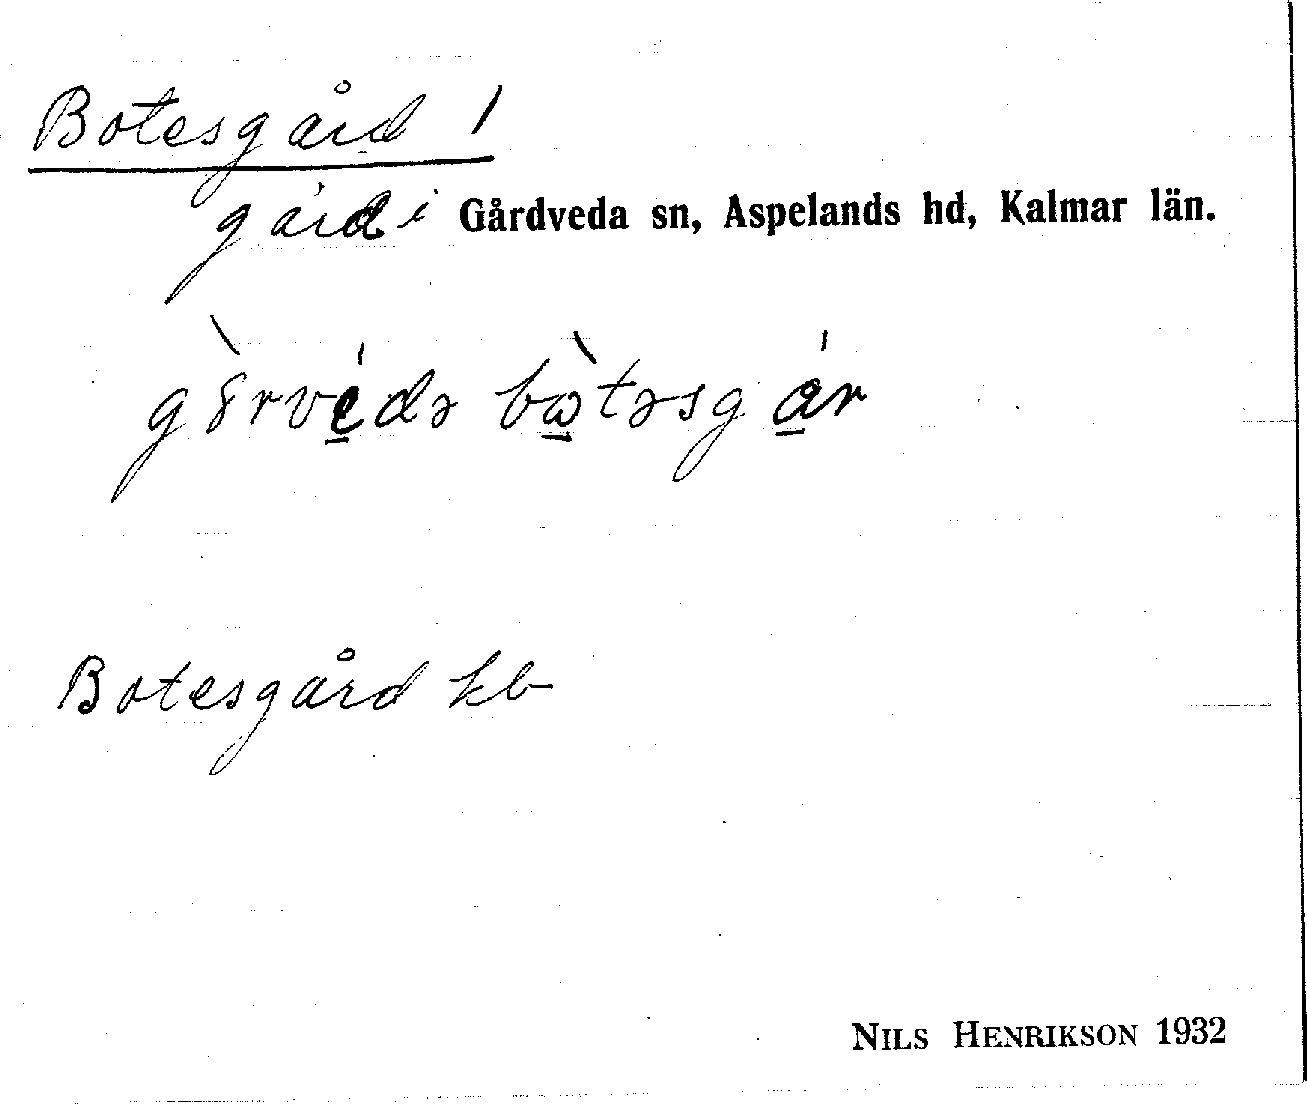 Botesgård 1
gård i Gårdveda sn, Aspelands hd, Kalmar län.
gɤ̀rvé̱də bὼ̱təsgǻ̱r
Botesgård kb
NILS HENRIKSON 1932